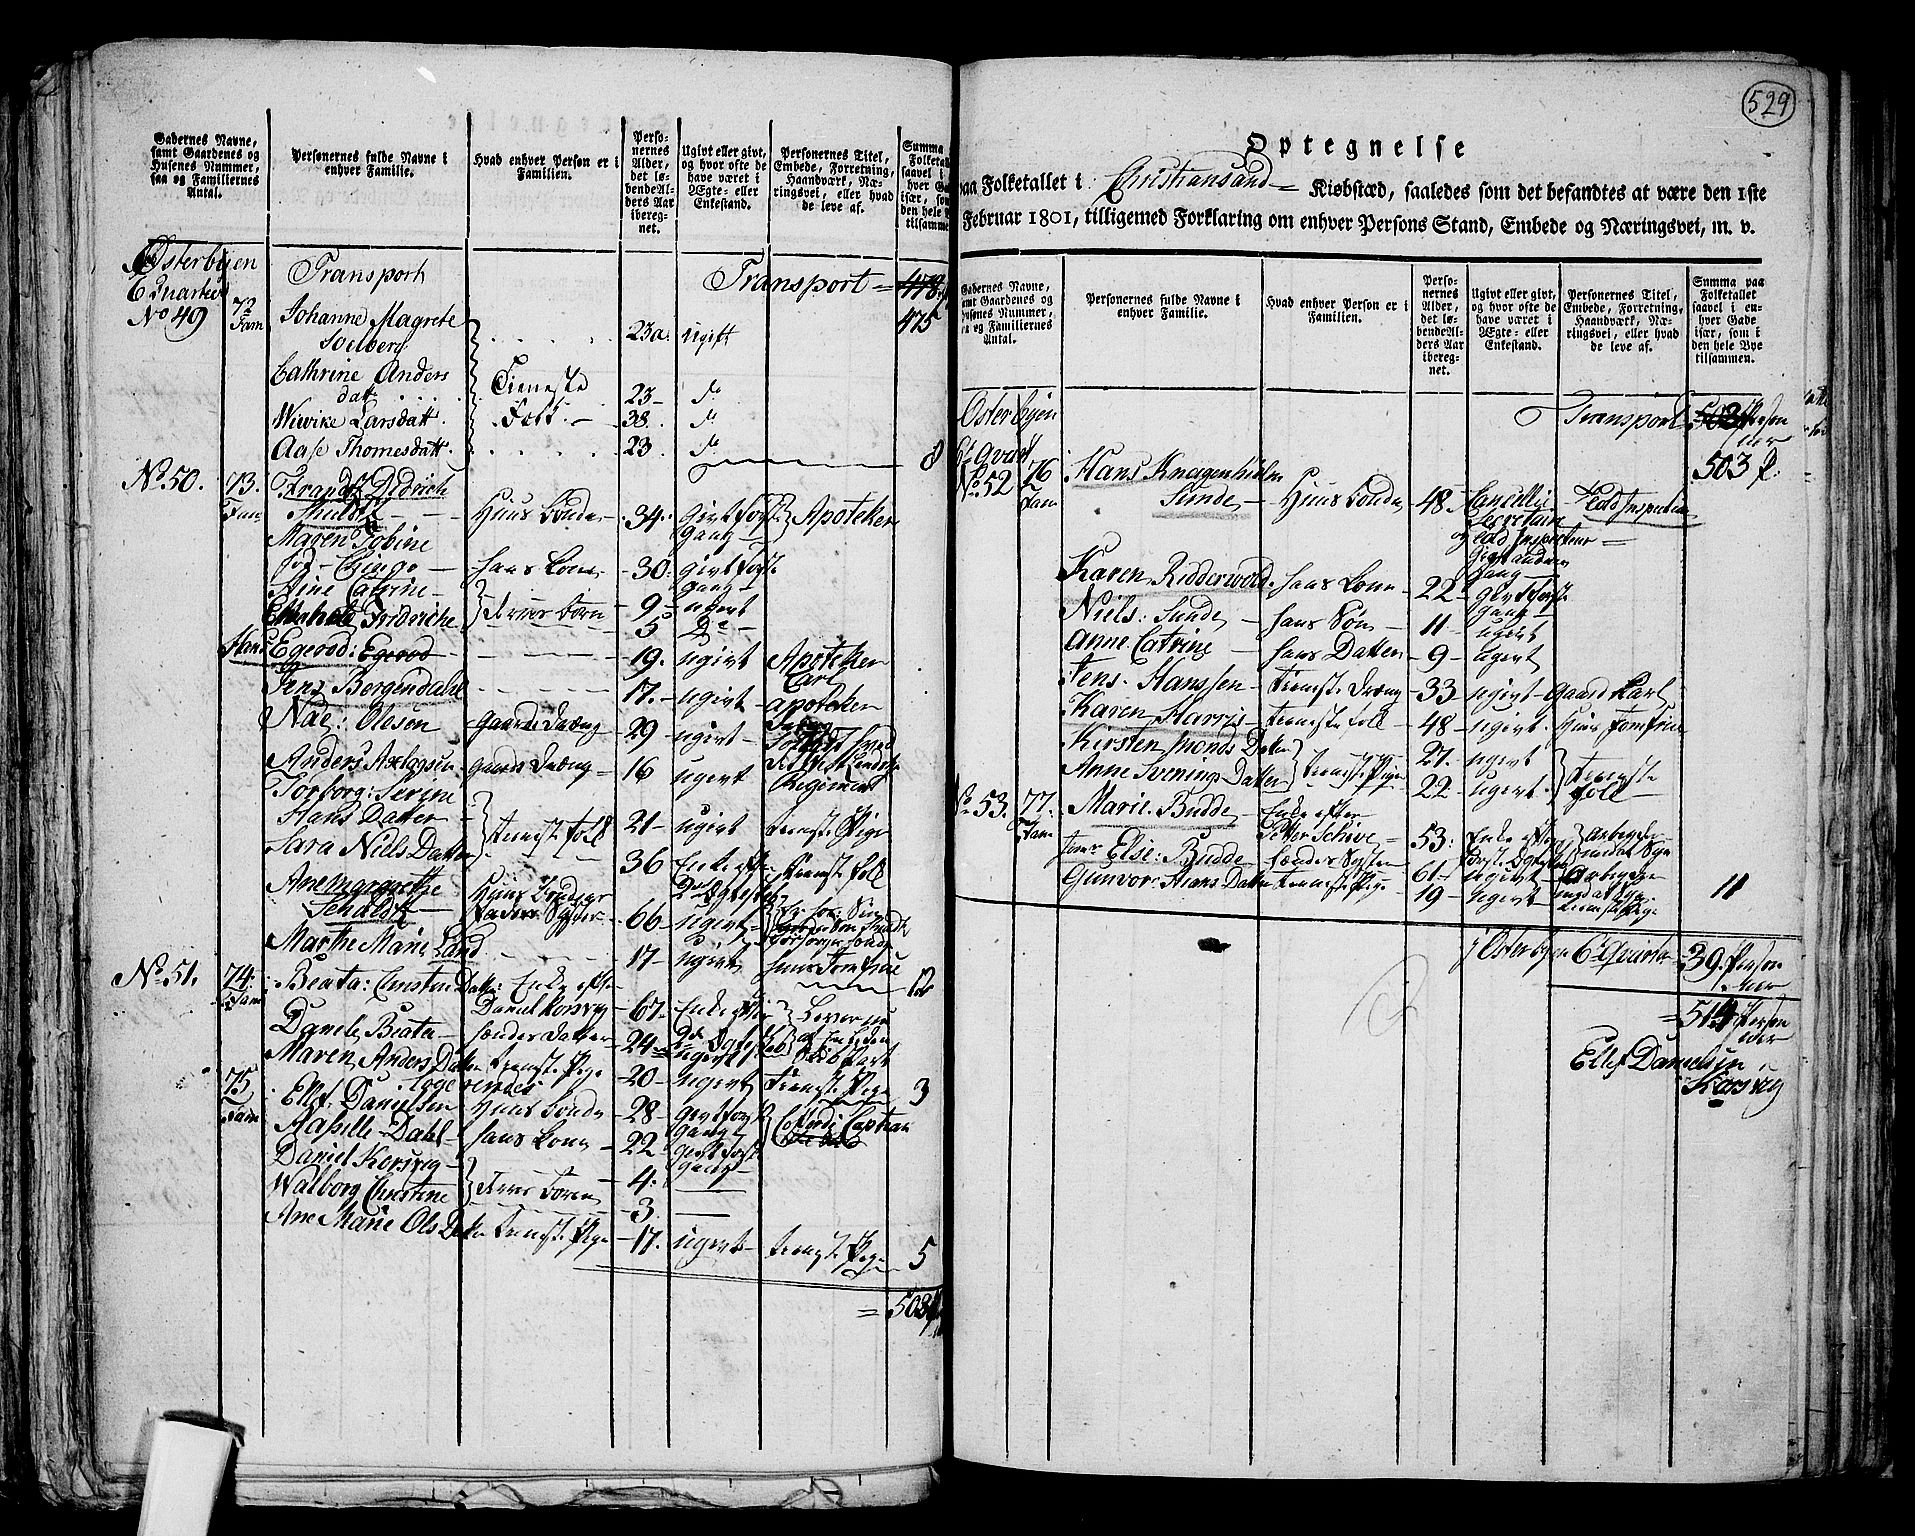 Gadernes Navne,
samt Gaardenes og
Husenes Nummer,
saa og Familiernes
Antal.
Personernes fulde Navne i
enhver Familie.
Hvad enhver Person er i
Familien.
Perso-
nernes
Alder,
det lø-
bende Al-
ders Aar
ibereg-
net.
Ugivt eller givt,
og hvor ofte de
have været i
Ægte- eller
Enkestand.
Personernes Titel,
Embede, Forretning,
Haandværk, Næ-
ringsvei, eller hvad
de leve af.
Summa
Folketal
saavel i
hver Ga
især, so
den hele By
tilsamme
Østerbyen
6 Quarteer
Transport
Transport = 478
475
No 49 72 Fam Johanne Magrete
Solberg 23 a ugift
Cathrine Anders
datt Tieneste 23 - do
Wivike Larsdatt Folk - 38 do
Aase Thomesdatt 23 do 8
No. 50. 73. Fam Frandz Didrich
Shuldt Huus Bonde 34. givt først gang Apoteker
Magen Tobine
hans Kone 30. givt første gang
Nine Catrine - 9 - ugivt
Fridriche 5 Do
Hans Egeood: Egeood 19. ugivt Apoteker Carl
Jens Bergendahl 17. - ugivt - apoteker
Nae: Olesøn Gaards Dræng 29 - ugivt - Soldat
Anders Axlagsen gaards Dræng - 16 ugivt Regiment
Torborg: Serine
Hans Datter - tieneste folk 21 - ugivt tieneste Pige
Sara Niels Datter 36 Enke tieneste folk
Anemargrethe
Schuldt Huus Bondens Fader Syster 66 - ugivt -
Marthe Marie Land 17 - ugivt huus Jomfrue 12
No. 51. 74. Fam Beata: Christens Datter Enke efter
Daniel Korsvig 67. - Enke Lever
Danele Beate - hendes Datter 24
Maren Anders Datter tieneste Pige 20 - ugivt tieneste Pige 3
75 Fam Ellef: Danielsen Huus Bonde - 28 - givt først gang Captein
Aaselle Dahl - hans Kone - 22 givt først gang
Daniel Korsvig - 4.
Walborg Christine deres børn - 3.
Ane Marie Ols Datter tieneste Pige - 17. ugivt tieneste Pige 5
= 503
529
Optegnelse
paa Folketallet i Christiansand = Kiøbstæd, saaledes som det befandtes at være den 1ste
Februar 1801, tilligemed Forklaring om enhver Persons Stand, Embede og Næringsvei, m. v.
Gadernes Navne,
samt Gaardenes og
Husenes Nummer,
saa og Familiernes
Antal.
Personernes fulde Navne i
enhver Familie.
Hvad enhver Person er i
Familien.
Perso-
nernes
Alder,
det lø-
bende Al-
ders Aar
ibereg-
net.
Ugivt eller givt,
og hvor ofte de
have været i
Ægte- eller
Enkestand.
Personernes Titel,
Embede, Forretning,
Haandværk, Næ-
ringsvei, eller hvad
de leve af.
Summa paa
Folketallet
saavel i en-
hver Gade
især, som i
den hele Bye
tilsammen.
Østerbyen
6te Qvart
Transport 503 Personer
503 P.
No. 52 76 Fam Hans Knagenhielm
Sunde - Huus Bonde 48 Cancellie Secretair og Told Inspecteur Told Inspecteur
Karen Ridderwold hans Kone - 22 - givt første gang -
Niels: Sunde - hans Søn - 11 - ugivt
Anne Catrine - hans Datter - 9 - ugivt
Jens. Hanssen - tieneste Dræng - 33 ugivt - Gaard Karl
Karen Harris - tieneste folk - 48 - ugivt. Huus Jomfrue
Kirsten Monds Datter 27. ugivt
Anne Svenings Datter tieneste Pige 22 - ugivt. tieneste folk
No. 53. 77. Fam Marie. Budde - Enke efter
Petter Schive - 53: Enke efter
Else: Budde hendes Syster 61 - ugivt
Gunvor: Hans Datter tieneste Pige - 19 - ugivt tieneste Pige 11
i Østerbyen 6te Quarter 39. Personer
= 514 Personer
Ellef Danielsen
Korsvig